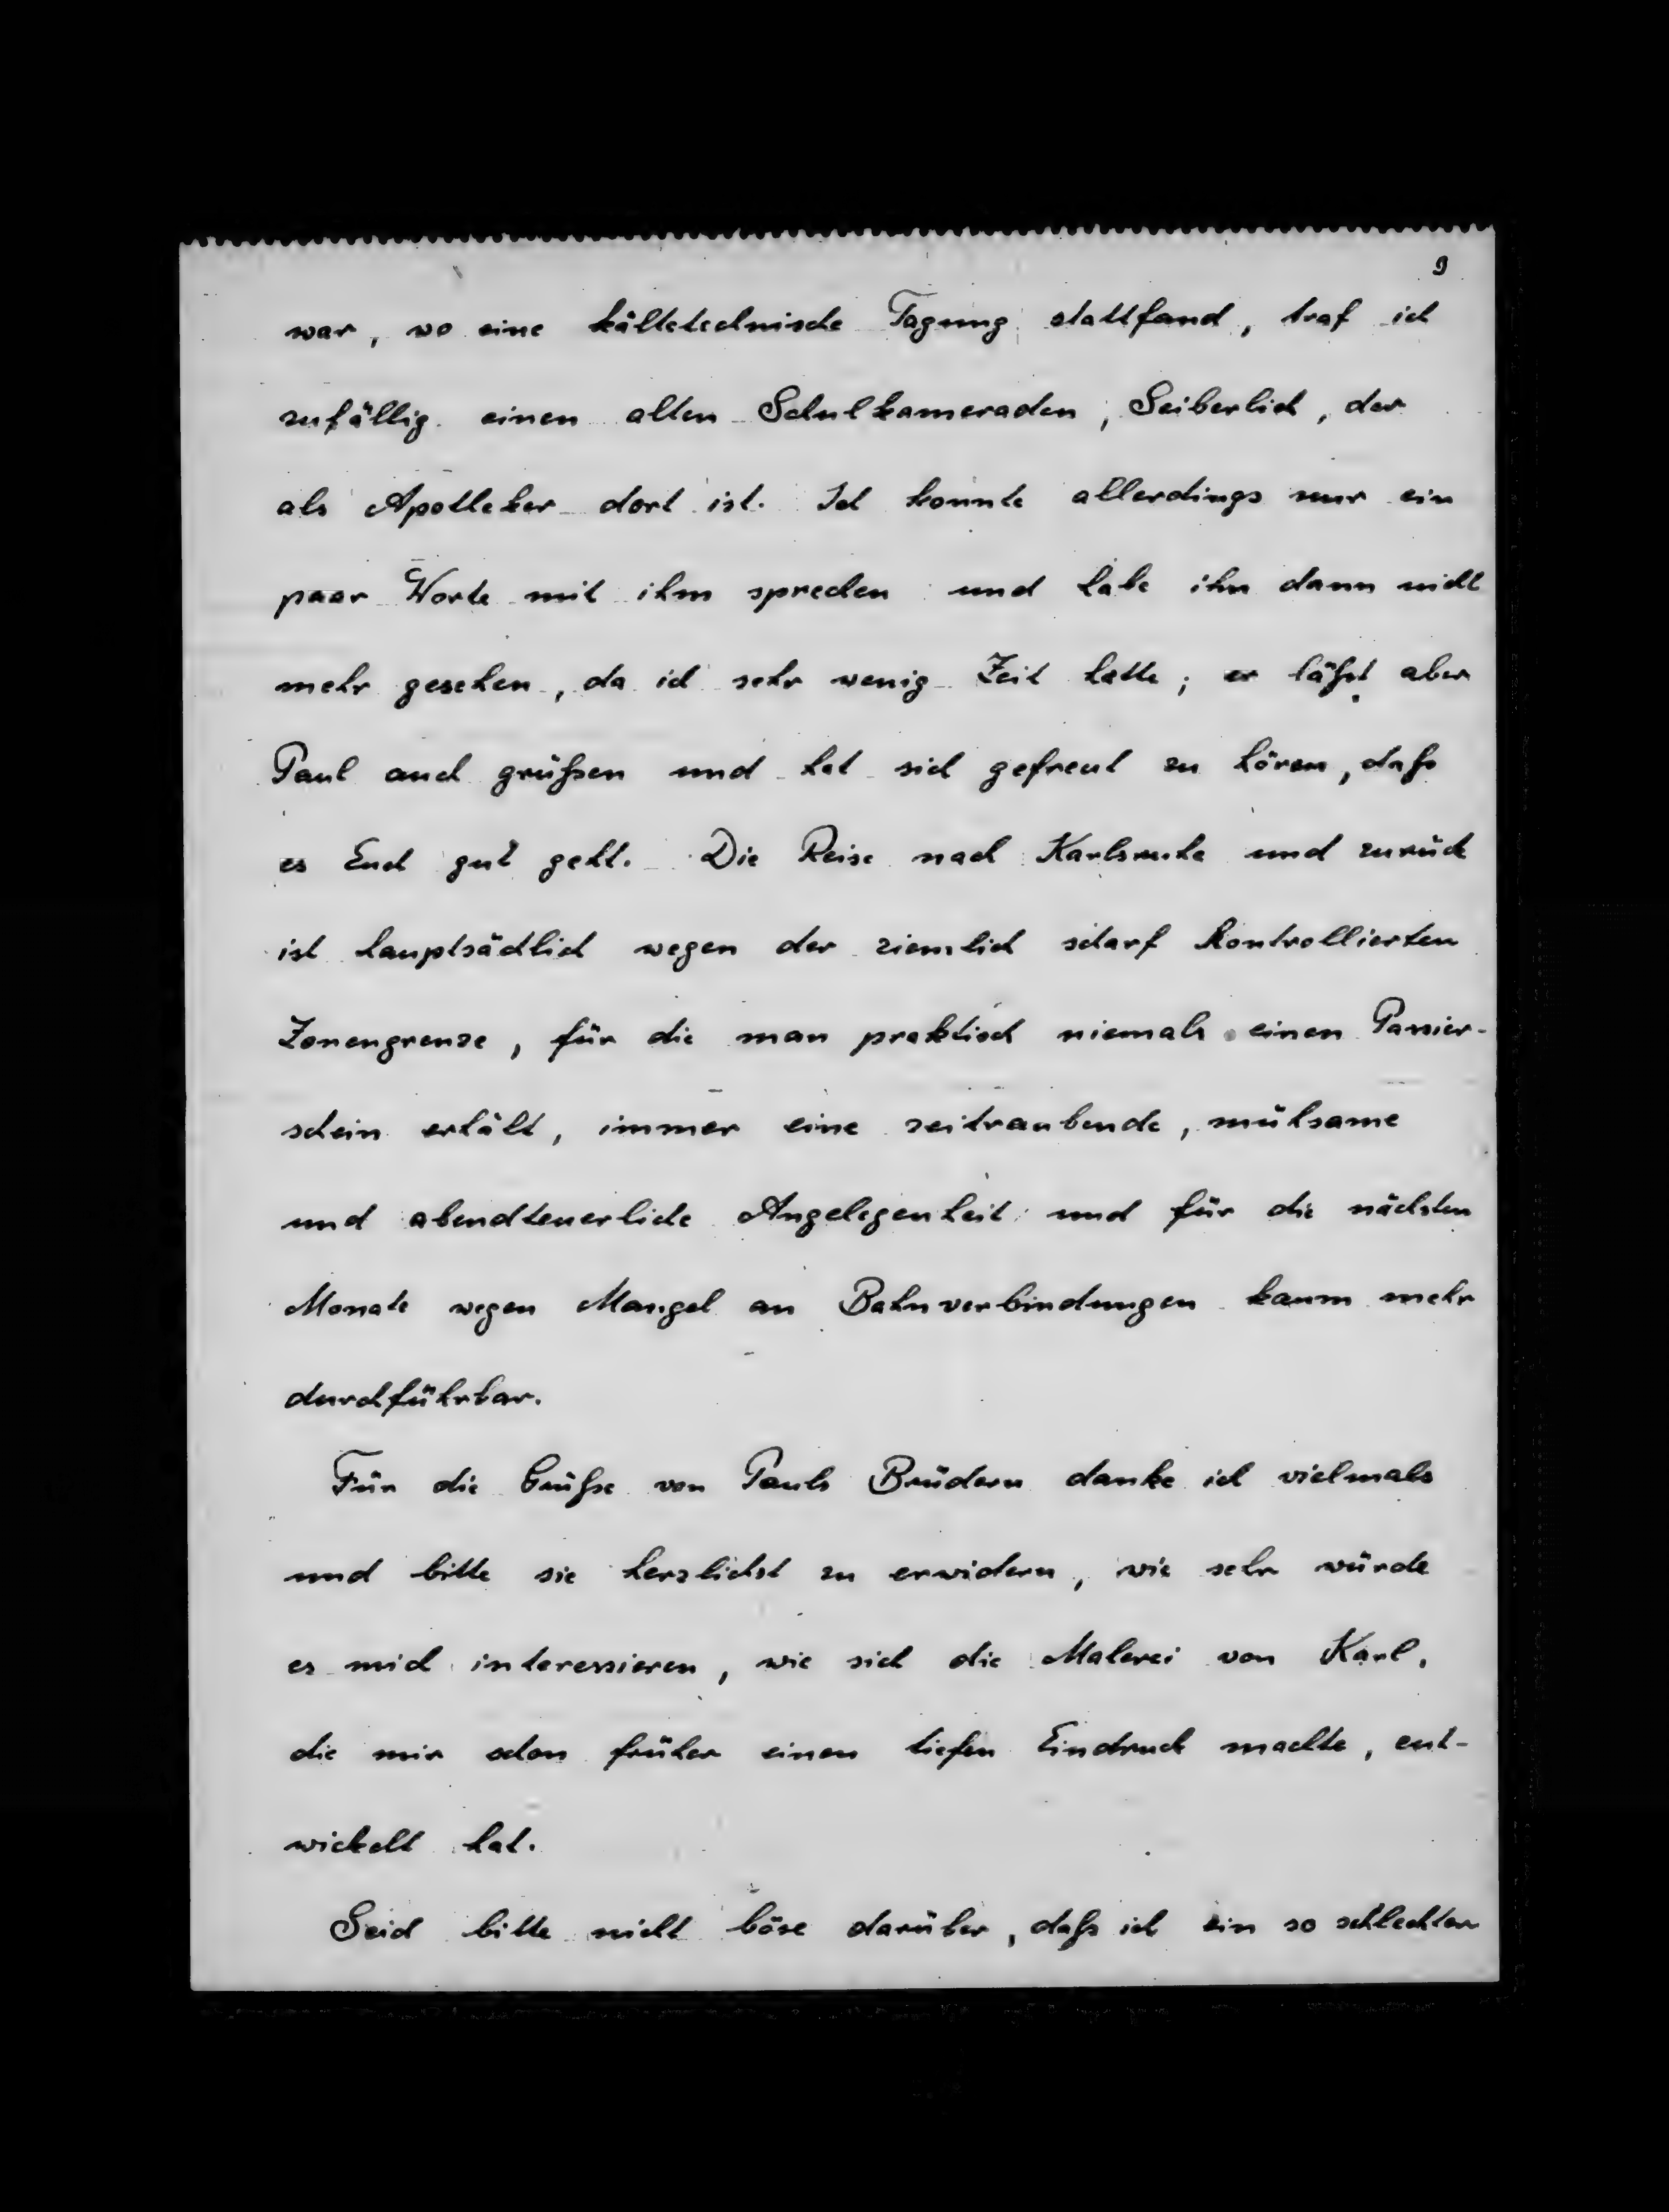 9
war, wo eine kältetechnische Tagung stattfand, traf ich
zufällig einen alten Schulkameraden, Seiberlich, der
als Apotheker dort ist. Ich konnte allerdings nur ein
paar Worte mit ihm sprechen und habe ihn dann nicht
mehr gesehen, da ich sehr wenig Zeit hatte; er läßt aber
Paul auch grüßen und hat sich gefreut zu hören, daß
es Euch gut geht. Die Reise nach Karlsruhe und zurück
ist hauptsächlich wegen der ziemlich scharf kontrollierten
Zonengrenze, für die man praktisch niemals einen Passier-
schein erhält, immer eine zeitraubende, mühsame
und abendteuerliche Angelegenheit und für die nächsten
Monate wegen Mangel an Bahnverbindungen kaum mehr
durchführbar.
Für die Grüße von Pauls Brüdern danke ich vielmals
und bitte sie herzlichst zu erwidern, wie sehr würde
es mich interessieren, wie sich die Malerei von Karl,
die mir schon früher einen tiefen Eindruck machte, ent-
wickelt hat.
Seid bitte nicht böse darüber, daß ich ein so schlechter